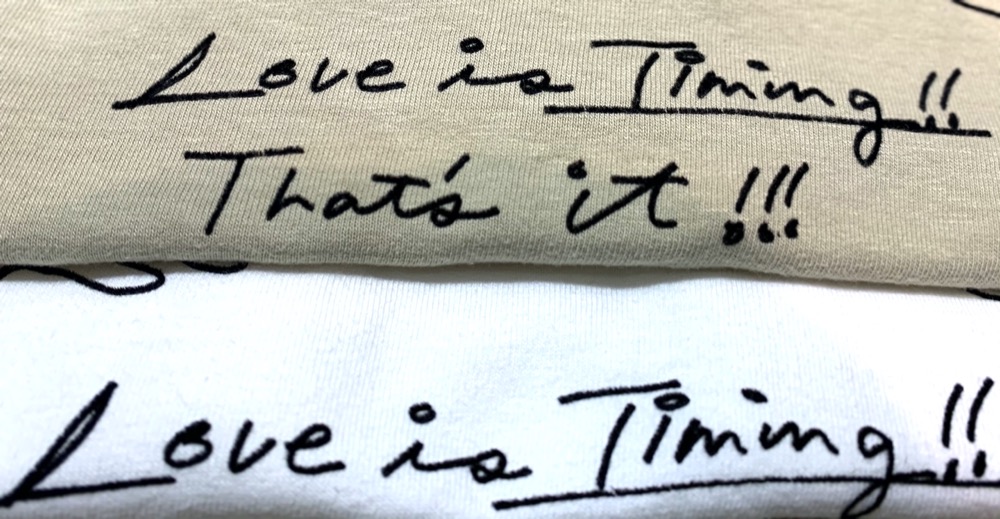 Love is Timing!!
That's it!!!
Love is Timing!!